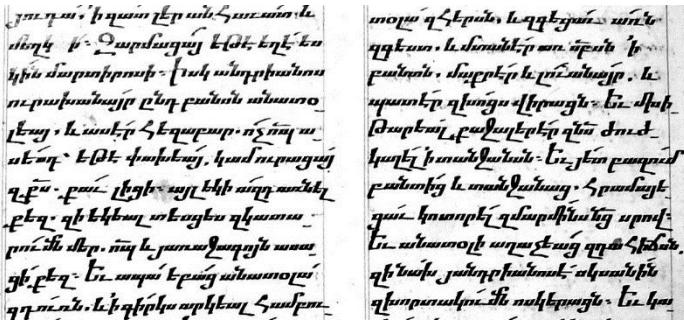 մեղկ ն։ Զարմացայ եթէ եղէ ես
կին մարտիրոսի։ Իսկ անդրիանոս
ուրախանայր ընդ բանսն անատօ
լեայ, և ասէր հեզաբար. ոչ որպ ա
սեմդ՝ եթէ փախեայ, կամ ուրացայ
զքս. քաւ լիցի. այլ եկի ազդ առնել
քեզ. զի եկեալ տեսցես զկատա
րումն մեր. որպ և յառաջագոյն ասա
ցի քեզ։ Եւ ապա եբաց անատօլա
զդուռն. և ՚ի գիրկս արկեալ համբու
տօլա զհերսն, և զգեցաւ առն
զգեստ. և մտանէր առ սրբսն ՚ի
բանտն. մաքրէր և լուանայր, և
պատէր զխոցս վիրացն։ Եւ մխի
թարեալ քաջալերէր զնս ժուժ
կալել ՚ի տանջանսն։ Եւ յետ բազում
բանտից և տանջանաց. հրամայե
ցաւ կոտորել զմարմինս նց սրով։
Եւ անատօլի աղաչեաց զդահիճսն,
զի նախ յանդրիանոսէ սկսանին
զխորտակումն ոսկերացն։ Եւ կա